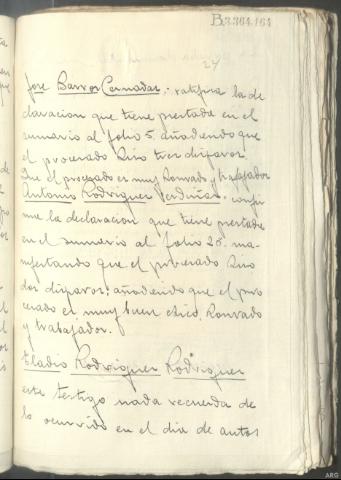 B 3.364.164
24
Jose Barros Cernadas, - ratifica la de
claracion que tiene prestada en el
sumario al folio 5, añadiendo que
el procesado hizo tres disparos.
Que el procesado es muy honrado y trabajador
Antonio Rodriguez Verdiñas, confir
me la declaracion que tiene prestada
en el sumario al folio 26. ma-
nifestando que el procesado hizo
dos disparos; añadiendo que el pro
cesado es muy buen chico, honrado
y trabajador.
Eladio Rodriguez Rodriguez
este testigo nada recuerda de
lo ocurrido en el dia de autos
ARG